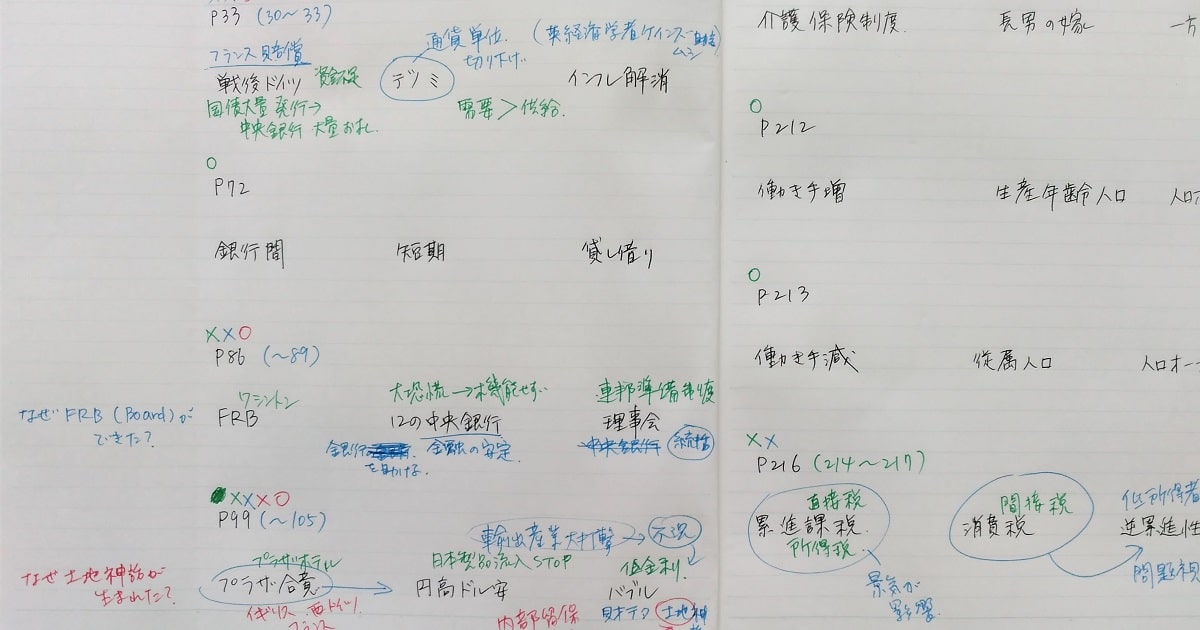 P33 (30〜33)
フランス賠償
通貨単位 切り下げ
(英経済学者ケインズ
戦後ドイツ 資金不足 デノミ インフレ解消
国債大量発行→
中央銀行 大量お札
需要>供給.
○
P72
銀行間 短期 貸し借り
××○
P86 (〜89)
ワシントン 大恐慌→機能せず 連邦準備制度
なぜFRB(Board)が
できた?
FRB 12の中央銀行 理事会
銀行 を助ける. 金融の安定. 中央銀行 統括
×××○
P99 (〜105)
輸出産業大打撃→不況
プラザホテル 日本製品流入STOP 低金利
なぜ土地神話が
生まれた?
プラザ合意 円高ドル安 バブル
イギリス、西ドイツ 内部留保 財テク 土地神
フランス
介護保険制度. 長男の嫁 一方
○
P212
働き手増 生産年齢人口 人口
○
P213
働き手減 従属人口 人口オー
××
P216 (214〜217)
直接税 間接税 低所得者
累進課税. 消費税 逆累進性
所得税. 問題視
景気が
影響